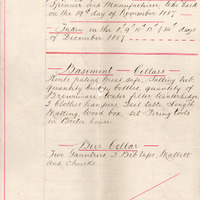 Spinner and Manufacturer who died
on the 19th day of November 1887
Taken on the 8th 9th 12th 13th & 14th days
of December 1887
Basement - Cellars
Kent's patent Meat Safe, Salting tub
quantity empty bottles, quantity of
Brownware, Water filter
2 clothes hampers, Deal table Length
Matting, Wood box, Set Firing tools
in Boiler house
Beer Cellar
Two Gauntrees, 2 Bib taps, Mallett
and Chucks